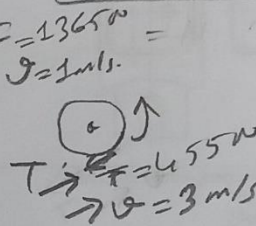 =1365N =
v=1m/s.
T → F=455N
→ v=3m/s